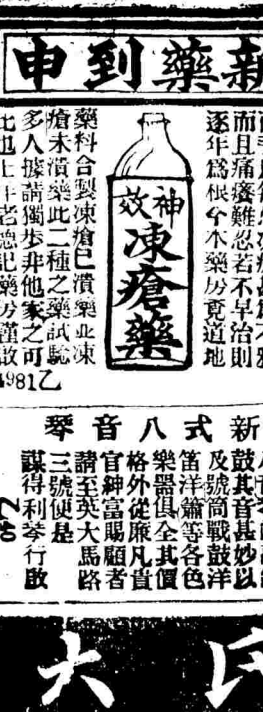 新藥到申
而且痛癢難忍若不早治則
逐年為根今本藥房覓道地
神效
凍瘡藥
藥料合製凍瘡已潰藥並凍
瘡未潰藥此二種之藥試驗
多人據請獨步非他家之可
比也上洋老德記藥房謹啟
4981乙
新式八音琴
鼓其音甚妙以
及號筒戰鼓洋
笛洋簫等各色
樂器俱全其價
格外從廉凡貴
官紳富賜顧者
請至英大馬路
三號便是
謀得利琴行啟
大